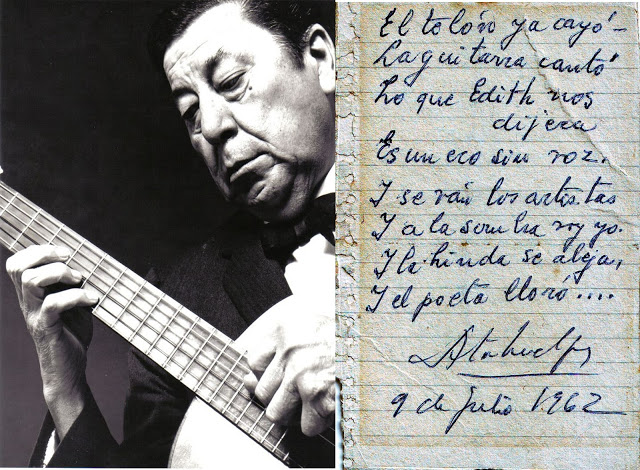 El telón ya cayó –
La guitarra cantó
Lo que Edith nos
dijera
Es un eco sin voz.
Y se van los artistas
Y a la sombra voy yo.
Y la linda se aleja,
Y el poeta lloró....
Atahualpa
9 de Julio 1962